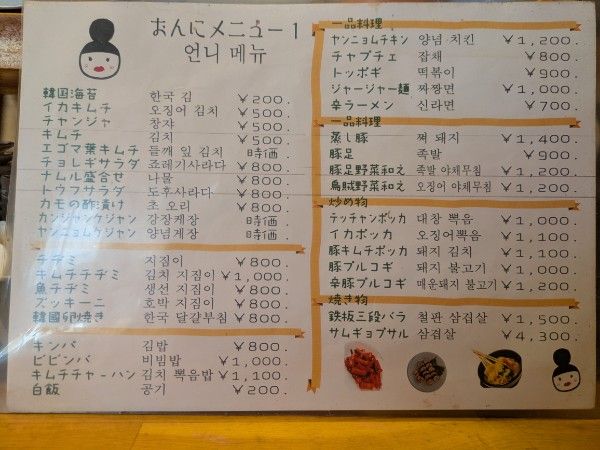 おんにメニュー1
언니 메뉴
韓国海苔 한국 김 ¥200.
イカキムチ 오징어 김치 ¥500.
チャンジャ 창자 ¥500.
キムチ 김치 ¥500.
エゴマ葉キムチ 들깨 잎 김치 時価.
チョレギサラダ 죠레기사라다 ¥800.
ナムル盛合せ 나물 ¥800.
トウフサラダ 도후사라다 ¥800.
カモの酢漬け 초 오리 ¥800.
カンジャンケジャン 강장케장 時価.
ヤンニョムケジャン 양념계장 時価.
チヂミ 지짐이 ¥800.
キムチチヂミ 김치 지짐이 ¥1,000.
魚チヂミ 생선 지짐이 ¥800.
ズッキーニ 호박 지짐이 ¥800.
韓國卵焼き 한국 달걀부침 ¥800.
キンパ 김밥 ¥800.
ビビンバ 비빔밥 ¥1,000.
キムチチャ-ハン 김치 뽁음밥 ¥1,100.
白飯 공기 ¥200.
一品料理
ヤンニョムチキン 양념 치킨 ¥1,200.
チャプチェ 잡채 ¥800.
トッポギ 떡볶이 ¥900.
ジャージャー麺 짜짱면 ¥1,000.
辛ラーメン 신라면 ¥700.
一品料理
蒸し豚 쪄 돼지 ¥1,400.
豚足 족발 ¥900.
豚足野菜和え 족발 야채무침 ¥1,200.
烏賊野菜和え 오징어 야채무침 ¥1,200.
炒め物
テッチャンポッカ 대창 뽁음 ¥1,000.
イカポッカ 오징어뽁음 ¥1,100.
豚キムチポッカ 돼지 김치 ¥1,100.
豚プルコギ 돼지 불고기 ¥1,000.
辛豚プルコギ 매운돼지 불고기 ¥1,200.
焼き物
鉄板三段バラ 철판 삼겹살 ¥1,500.
サムギョプサル 삼겹살 ¥4,300.